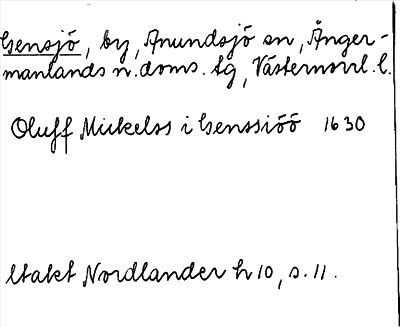 Gensjö, by, Anundsjö sn, Ånger-
manlands n. doms. tg, Västernorrl. l.
Oluff Mickelss i Genssiöö 1630
Utaht Nordlander h 10, s. 11.